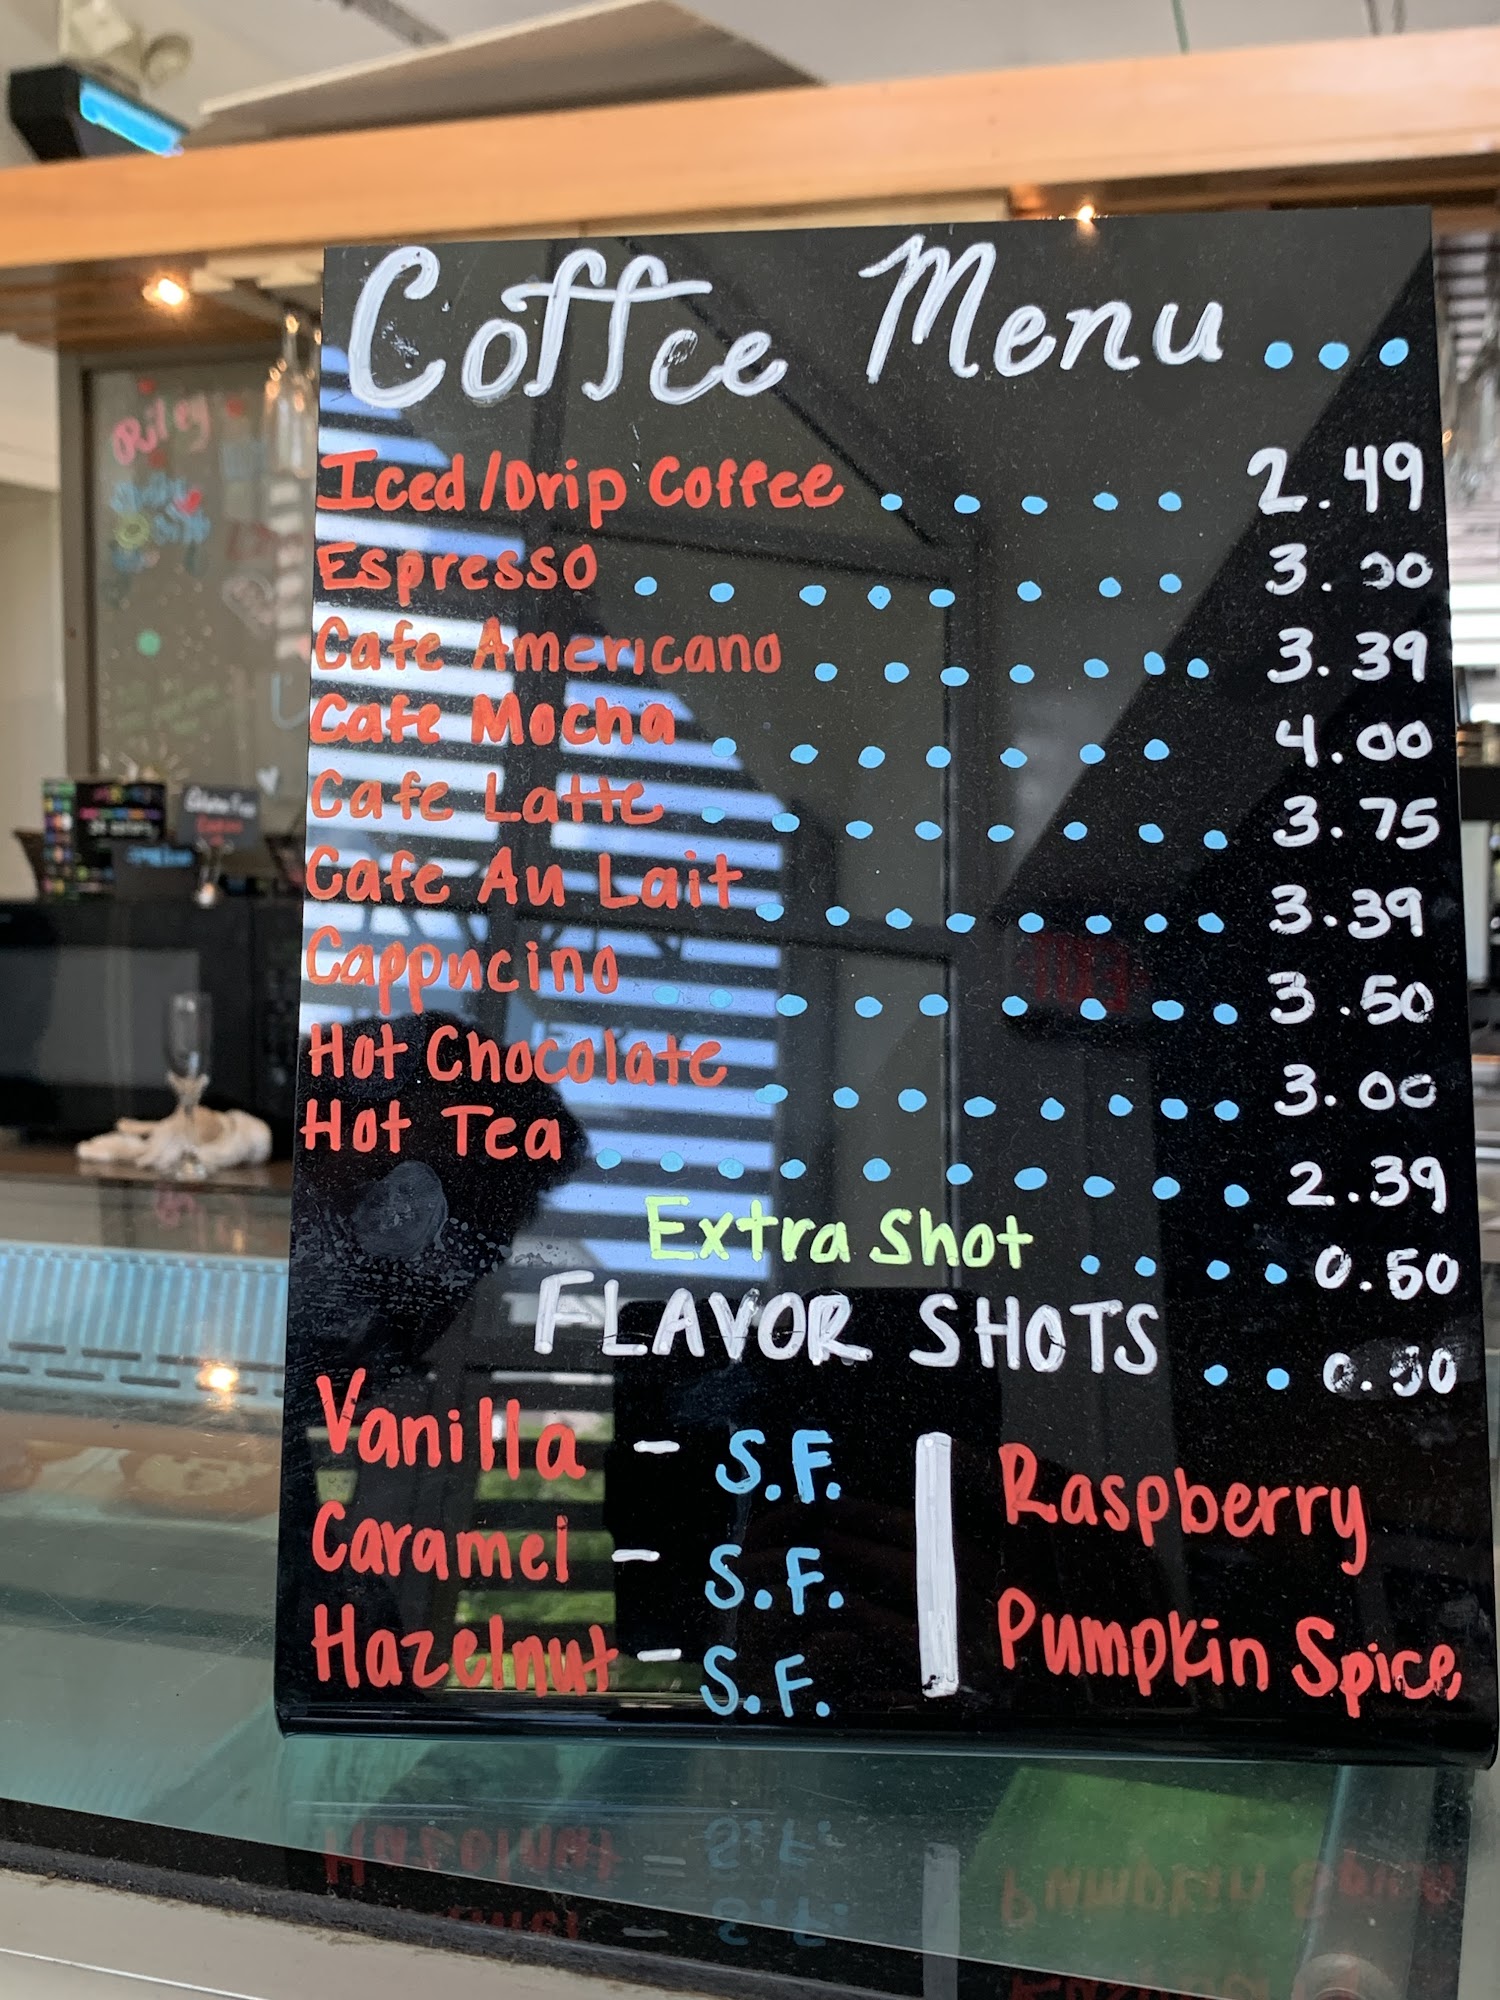 Coffee Menu...
Iced/Drip Coffee ..... 2.49
Espresso ........ 3.00
Cafe Americano ...... 3.39
Cafe Mocha ....... 4.00
Cafe Latte ........ 3.75
Cafe Au Lait ....... 3.39
Cappucino ......... 3.50
Hot Chocolate ........ 3.00
Hot Tea .......... 2.39
Extra Shot .... 0.50
FLAVOR SHOTS .. 0.50
Vanilla - S.F. | Raspberry
Caramel - S.F.
Hazelnut - S.F. | Pumpkin Spice
Riley
EXIT